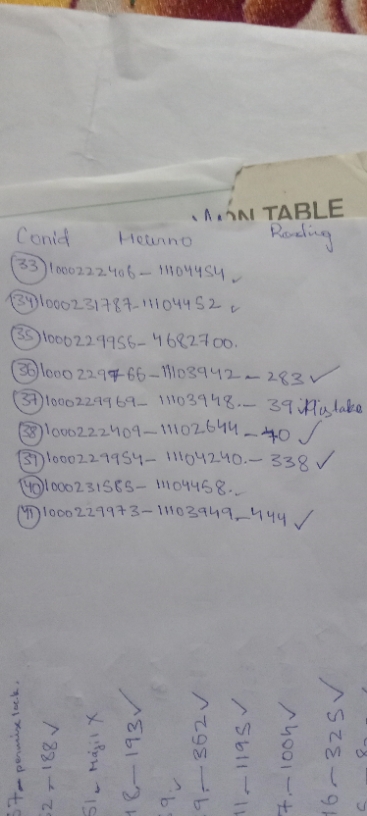 ON TABLE
Conid Mewrno Reading
33 1000222406-11104454
34 1000231787-11104452
35 1000229956-4682700.
36 1000229766-11103942-283 ✓
37 1000229969-11103948.-39 Mistake
38 1000222409-11102644-40 ✓
39 1000229954-11104240.-338 ✓
40 1000231585-11104458.-
41 1000229973-11103949-444 ✓
57-permise lock.
52-188 ✓
51. Majil X
18-193 ✓
9. ✓
9.-362 ✓
11-1195 ✓
7-1004 ✓
16-325 ✓